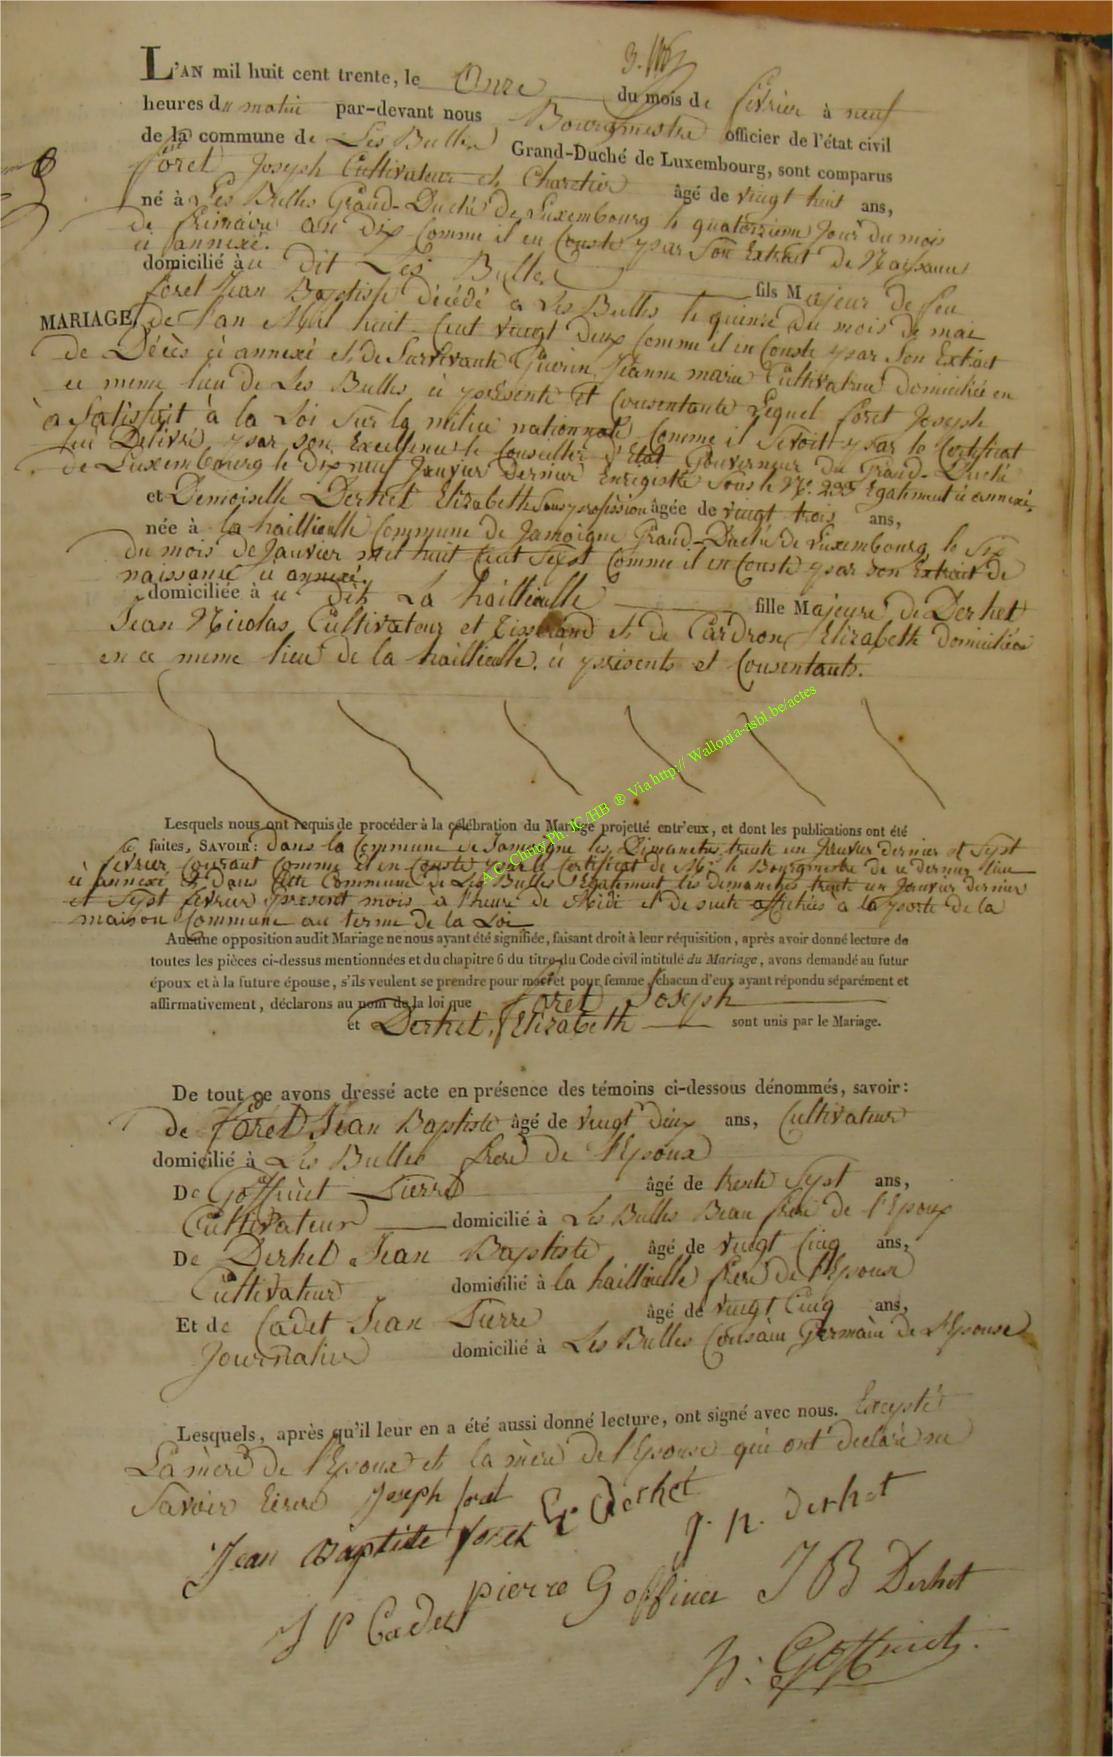 L'AN mil huit cent trente, le Onze du mois de février à neuf
heures du matin par-devant nous Bourgmestre officier de l'état civil
de la commune de Les Bulles Grand-Duché de Luxembourg, sont comparus
foret Joseph Cultivateur et Charetier âgé de vingt huit ans,
né à Les Bulles Grand-Duché de Luxembourg le quatorzieme Jour du mois
de frimaire an dix Comme il en Conste par Son Extrait de Naissance
ci annexé.
domicilié à ce dit Les Bulles fils Majeur de feu
foret Jean Baptiste décédé à Les Bulles le quinze du mois de mai
MARIAGE de l'an Mil huit Cent vingt deux Comme il en Conste par Son Extrait
de Décès ci annexé et de Survivante Guerin Jeanne marie Cultivatrice domiciliée en
ce meme lieu de Les Bulles ici présente et Consentante Lequel foret Joseph
à Satisfait à la Loi Sur la milice nationnale Comme il Se voit par le Certificat
lui Délivré par son Excellence le Conseiller d'Etat Gouverneur du Grand-Duché
de Luxembourg le dix neuf Janvier Dernier Enregistré Sous le No. 235 Egalement ci annexé,
et Demoiselle Derhet Elizabeth Sans profession âgée de vingt trois ans,
née à la haillieulle Commune de Jamoigne Grand-Duché de Luxembourg le Six
du mois de Janvier mil huit Cent Sept Comme il en Conste par Son Extrait de
naissance ci annexé.
domiciliée à ce dit La haillieulle fille Majeure de Derhet
Jean Nicolas Cultivateur et Tisserand et de Cardron Elizabeth domiciliées
en ce meme lieu de la haillieulle. ici présents et Consentants.
Lesquels nous ont requis de procéder à la célébration du Mariage projetté entr'eux, et dont les publications ont été
faites, SAVOIR: Dans la Commune de Jamoigne les Dimanches trente un Janvier dernier et Sept
février Courant Comme il en Conste par le Certificat de Mr. le Bourgmestre de ce dernier lieu
ci annexé Et Dans Cette Commune de Les Bulles Egalement les dimanches trente un Janvier dernier
et Sept février présent mois à l'heure de Midi et de suite affichées à la porte de la
maison Commune au terme de la Loi
Aucune opposition audit Mariage ne nous ayant été signifiée, faisant droit à leur réquisition, après avoir donné lecture de
toutes les pièces ci-dessus mentionnées et du chapitre 6 du titre du Code civil intitulé du Mariage, avons demandé au futur
époux et à la future épouse, s'ils veulent se prendre pour mari et pour femme, chacun d'eux ayant répondu séparément et
affirmativement, déclarons au nom de la loi que foret Joseph
et Derhet, Elizabeth sont unis par le Mariage.
De tout ce avons dressé acte en présence des témoins ci-dessous dénommés, savoir:
De foret Jean Baptiste âgé de vingt deux ans, Cultivateur
domicilié à Les Bulles frere de l'Epoux
De Goffinet Pierre âgé de trente Sept ans,
Cultivateur domicilié à Les Bulles Beau frere de l'Epoux
De Derhet Jean Baptiste âgé de vingt Cinq ans,
Cultivateur domicilié à la haillieulle frere de l'Epouse
Et de Cadet Jean Pierre âgé de vingt Cinq ans,
Journalier domicilié à Les Bulles Cousain Germain de l'Epouse
Lesquels, après qu'il leur en a été aussi donné lecture, ont signé avec nous. Excepté
La mère de l'Epoux et la mère de l'Epouse qui ont déclaré ne
Savoir Ecrire Joseph foret
Jean Baptiste foret E Derhet j. n. derhet
J P Cadet pierre Goffinet J B Derhet
N: Goffinet.
A.C. Chiny Ph. JC/HB ® Via http:// Wallonia-asbl.be/actes